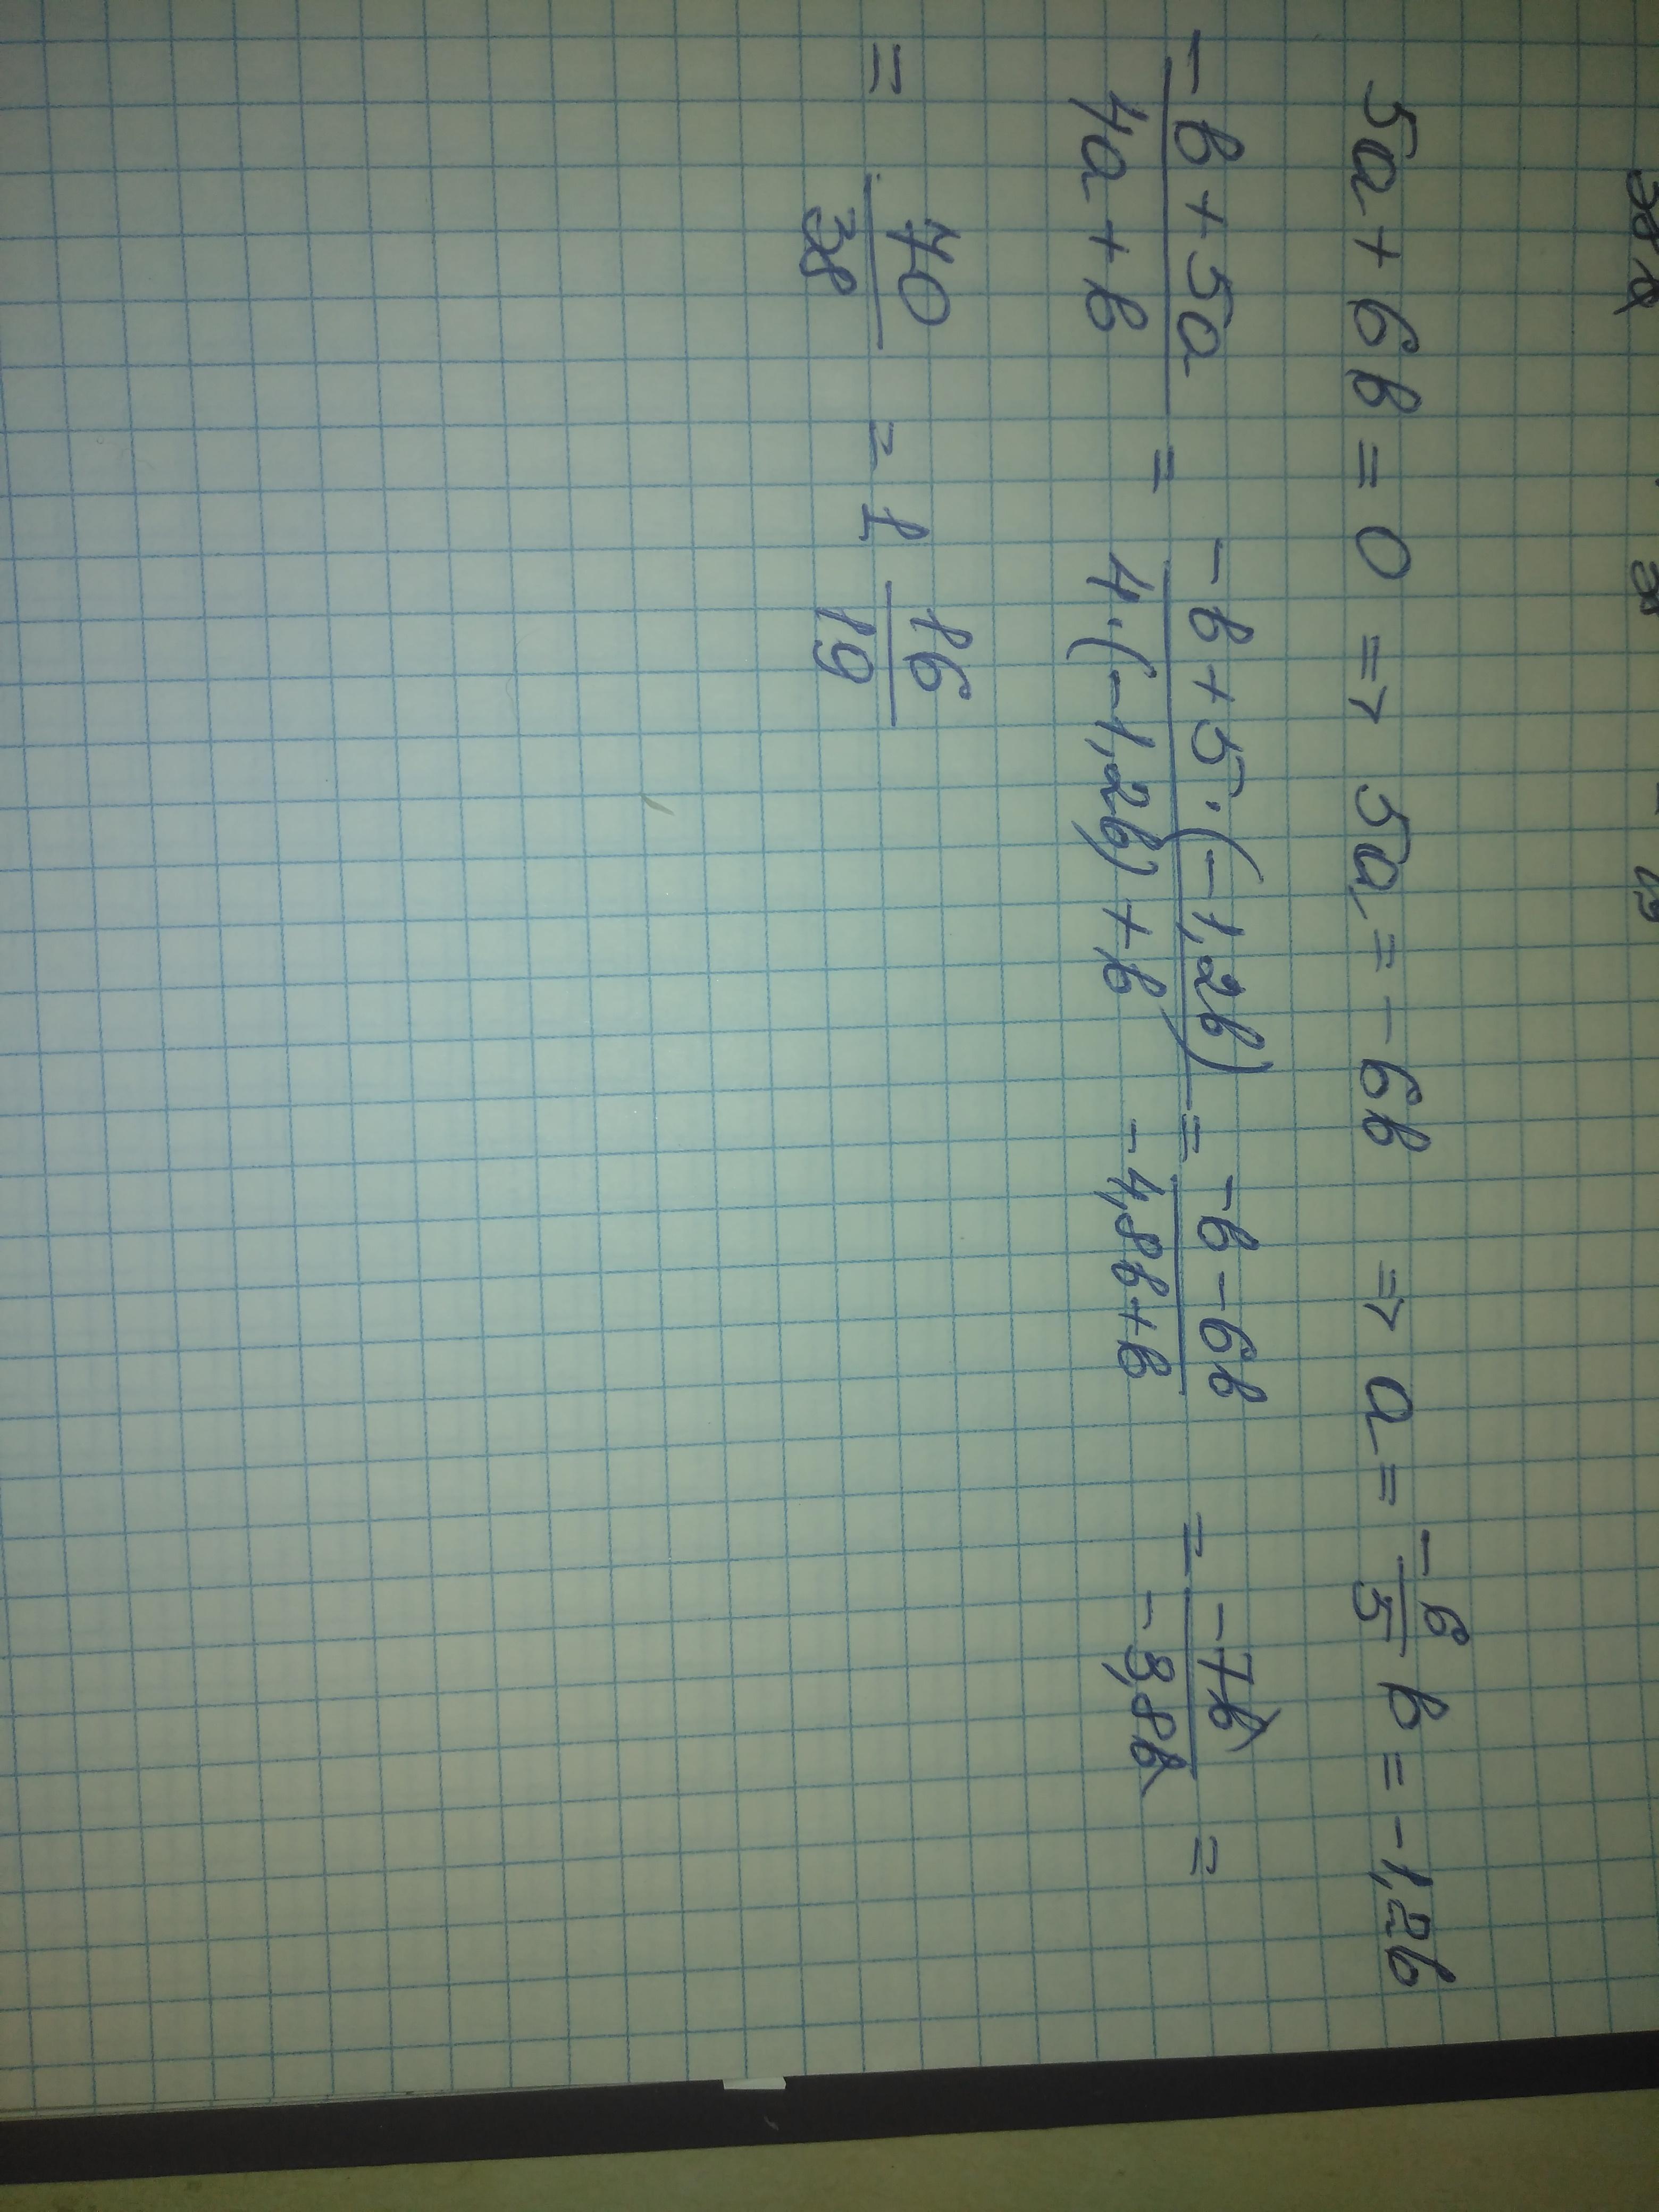 5a + 6b = 0 => 5a = -6b => a = -6/5 b = -1,2b
(-b+5a)/(4a+b) = (-b+5·(-1,2b))/(4·(-1,2b)+b) = (-b-6b)/(-4,8b+b) = (-7b)/(-3,8b) =
= 70/38 = 1 16/19